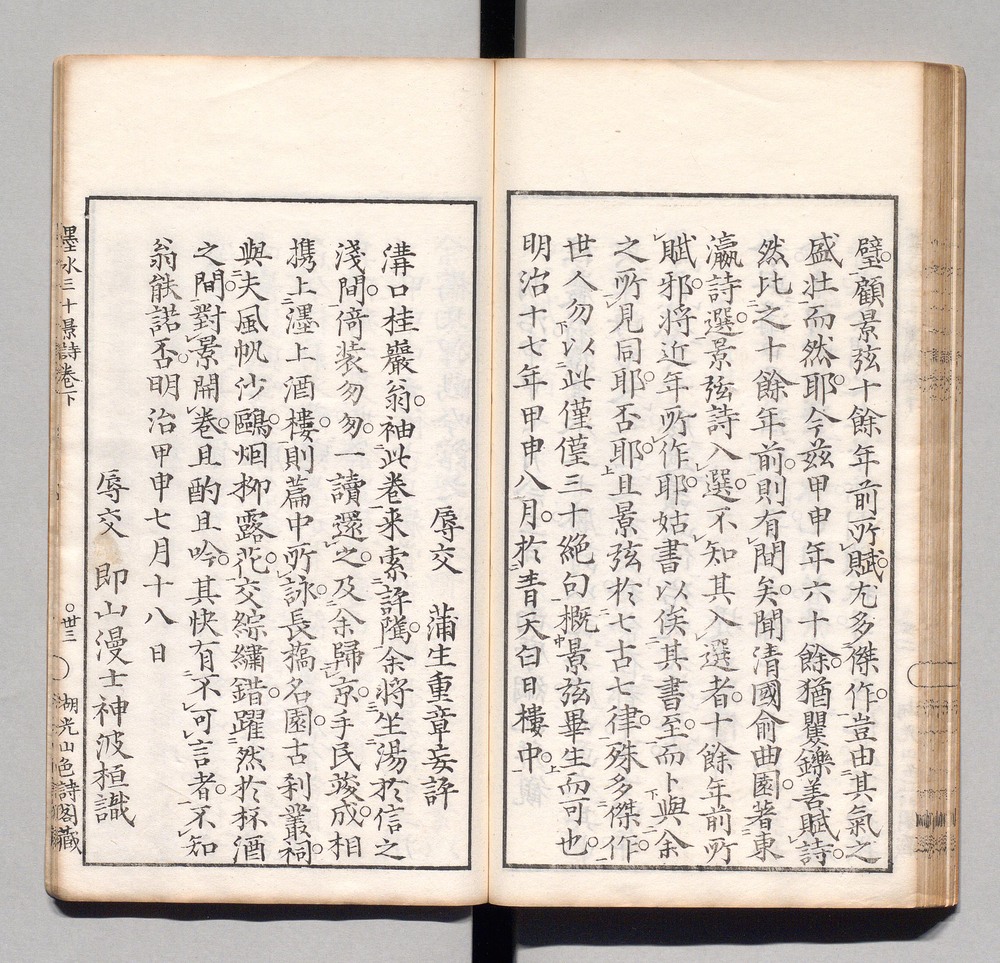 璧顧景弦十餘年前所賦尤多傑作豈由其氣之
盛壯而然耶今茲甲申年六十餘猶矍鑠善賦詩
然比之十餘年前則有間矣聞清國俞曲園著東
瀛詩選景弦詩入選不知其入選者十餘年前所
賦邪將近年所作耶姑書以俟其書至而卜與余
之所見同耶否耶且景弦於七古七律殊多傑作
世人勿以此僅僅三十絕句概景弦畢生而可也
明治十七年甲申八月於青天白日樓中
辱交 蒲生重章妄評
溝口桂巖翁袖此卷来索評隲余將坐湯於信之
淺間倚装匆匆一讀還之及余歸京手民竣成相
携上濹上酒樓則篇中所詠長橋名園古刹叢祠
與夫風帆沙鷗烟柳露花交綜繡錯躍然於杯酒
之間對景開卷且酌且吟其快有不可言者不知
翁能諾否明治甲申七月十八日
辱交 即山漫士神波桓識
墨水三十景詩卷下
○丗三
湖光山色詩閣藏